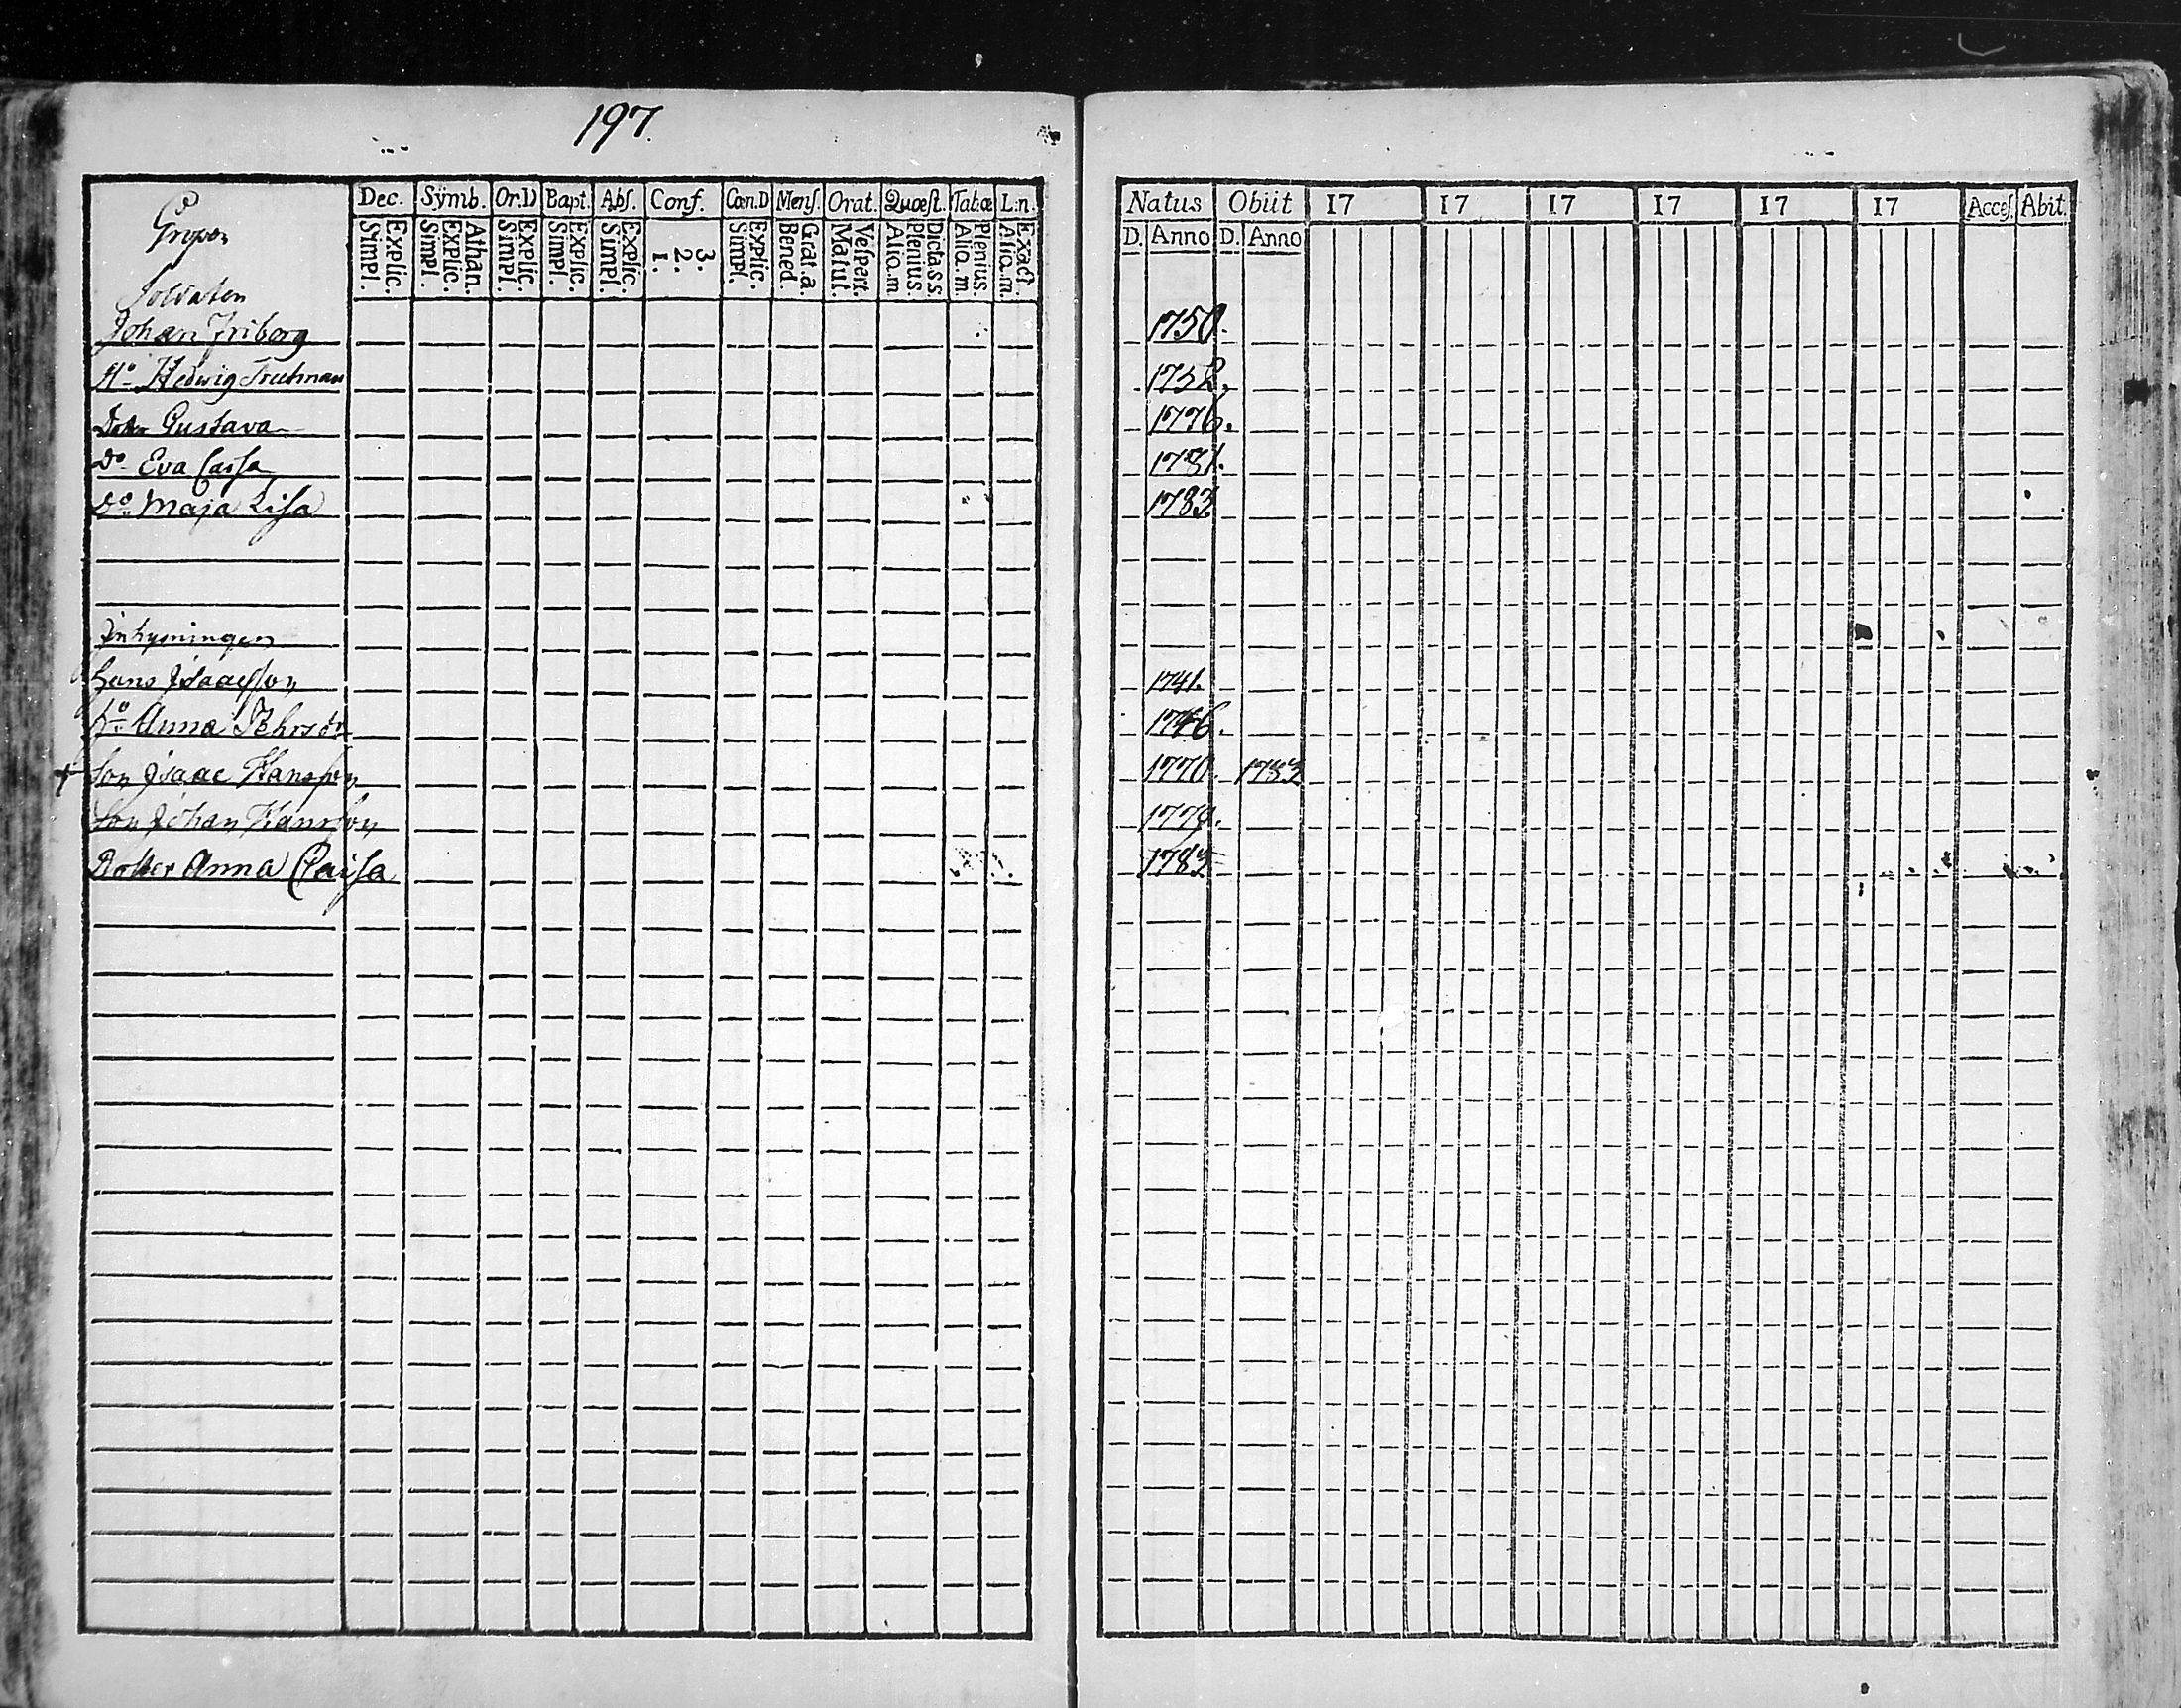 197.
Dec. Sÿmb. Or.D Bapt. Abſ. Conf. Cœn.D Menſ. Orat. Quæſt. Tabæ L.n.
Explic. Simpl. Athan. Explic. Simpl. Explic. Simpl. Explic. Simpl. Explic. Simpl. 3. 2. 1. Explic. Simpl. Grat. a. Bened. Veſpert. Matut. Dicta s.s. Plenius. Aliq. m. Plenius. Aliq. m. Exact. Aliq. m.
Natus Obiit 17 17 17 17 17 17 Acceſ. Abit.
D. Anno D. Anno
Soldaten
Johan Friberg 1750.
H:o Hedwig 1752.
Dotter Gustava 1776.
D:o Eva Caisa 1781.
D:o Maja Lisa 1783
Inhysningen
Hans Isaacsson 1741.
H:o Anna 1746.
+ Son Isaac Hansson 1770. 1783
Son Johan Hansson
Dotter Anna Caisa 1785